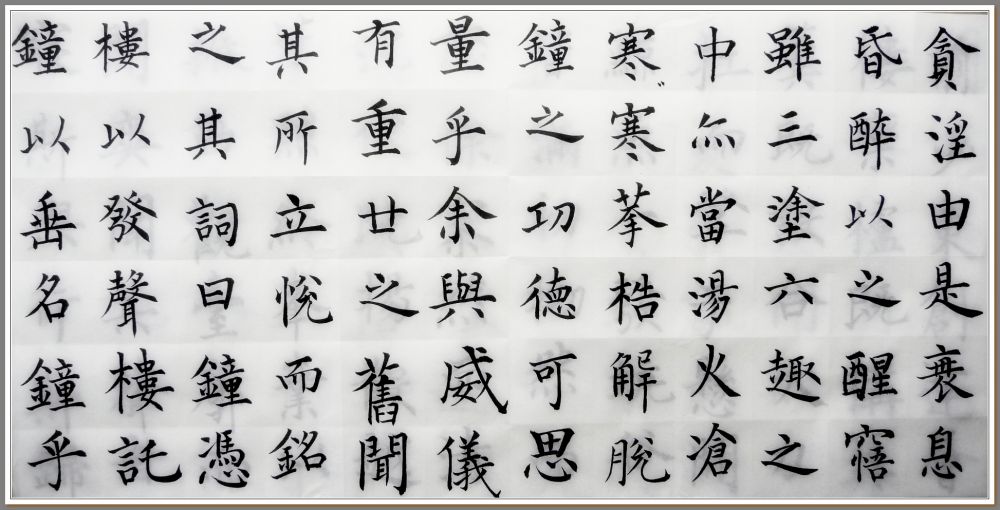 貪淫由是衰息
昏醉以之醒窹
雖三塗六趣之
中亦當湯火滄
寒寒拲梏解脫
鐘之功德可思
量乎余與威儀
有重廿之舊聞
其所立悅而銘
之其詞曰鐘憑
樓以發聲樓託
鐘以垂名鐘乎